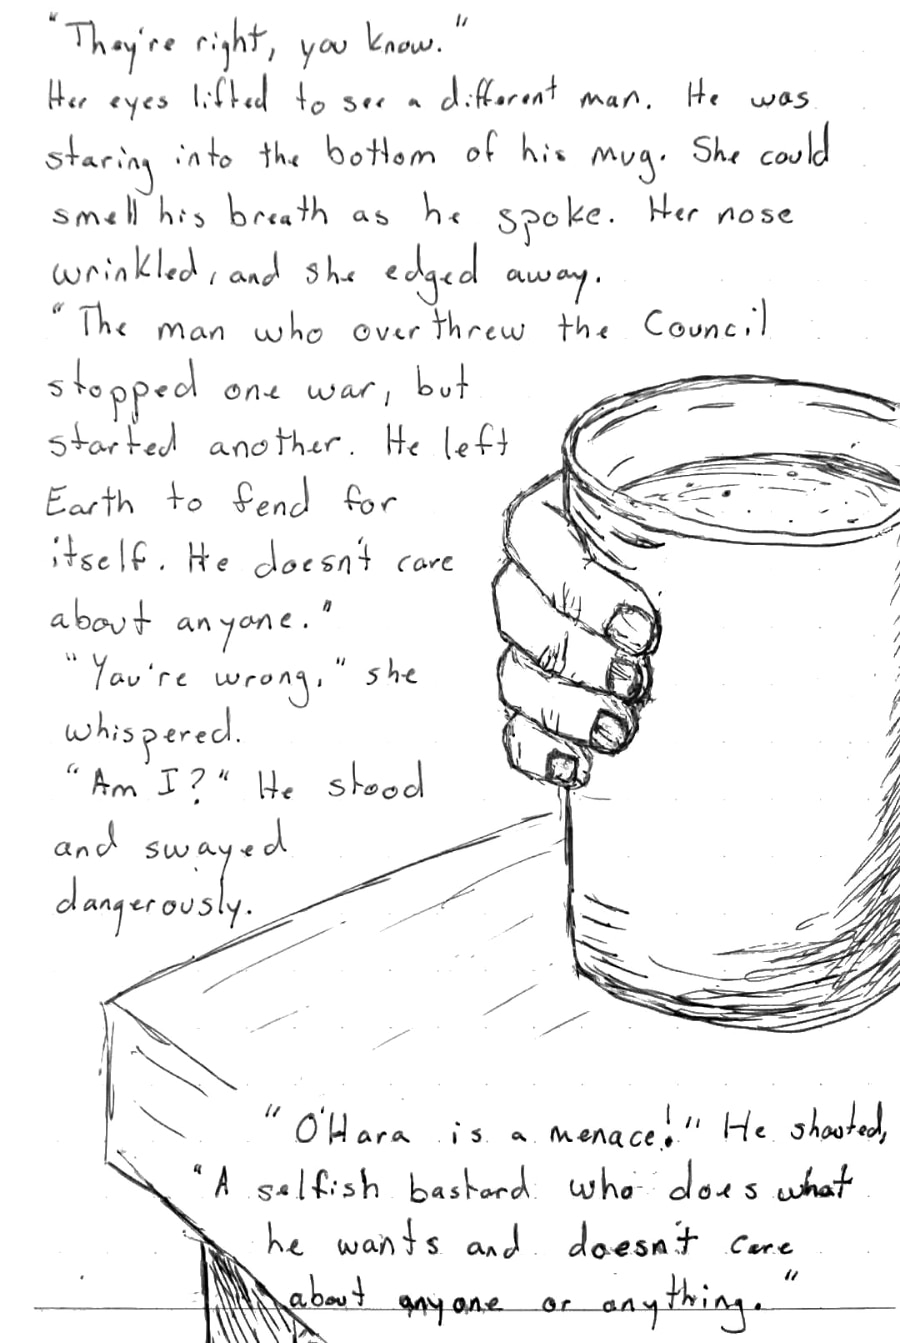 "They're right, you know."
Her eyes lifted to see a different man. He was
staring into the bottom of his mug. She could
smell his breath as he spoke. Her nose
wrinkled, and she edged away.
"The man who overthrew the Council
stopped one war, but
started another. He left
Earth to fend for
itself. He doesn't care
about anyone."
"You're wrong," she
whispered.
"Am I?" He stood
and swayed
dangerously.
"O'Hara is a menace!" He shouted,
"A selfish bastard who does what
he wants and doesn't care
about anyone or anything."